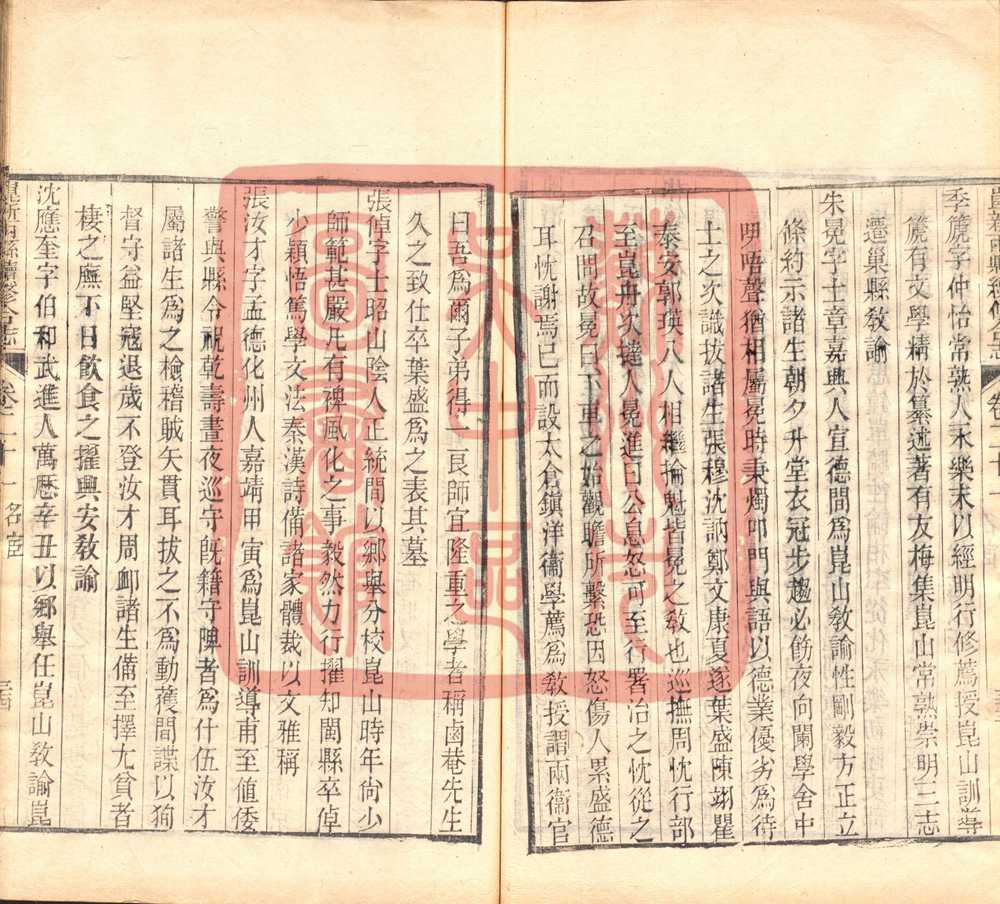 季篪字仲怡常熟人永樂末以經明行修薦授崑山訓導
篪有文學精於纂述著有友梅集崑山常熟崇明三志
遷巢縣敎諭
朱冕字士章嘉興人宣德間爲崑山敎諭性剛毅方正立
條約示諸生朝夕升堂衣冠步趨必飭夜向闌學舍中
咿唔聲猶相屬冕時秉燭叩門與語以德業優劣爲待
士之次識拔諸生張穆沈訥鄭文康夏遂葉盛陳翊瞿
泰安郭瑛八人相繼掄魁皆冕之敎也巡撫周忱行部
至崑舟次撻人冕進曰公息怒可至行署治之忱從之
召問故冕曰下車之始觀瞻所繫恐因怒傷人累盛德
耳忱謝焉已而設太倉鎭洋衞學薦爲敎授謂兩衞官
曰吾爲爾子弟得一良師宜隆重之學者稱鹵菴先生
久之致仕卒葉盛爲之表其墓
張倬字士昭山陰人正統間以鄉舉分校崑山時年尙少
師範甚嚴凡有裨風化之事毅然力行擢知閩縣卒倬
少穎悟篤學文法秦漢詩備諸家體裁以文雅稱
張汝才字孟德化州人嘉靖甲寅爲崑山訓導甫至値倭
警與縣令祝乾壽晝夜巡守旣籍守陴者爲什伍汝才
屬諸生爲之檢稽賊矢貫耳拔之不爲動蒦間諜以狥
督守益堅寇退歲不登汝才周卹諸生備至擇尢貧者
棲之廡下日飮食之擢興安敎諭
沈應奎字伯和武進人萬歷辛丑以鄉舉任崑山敎諭崑
卷二十一 名宦